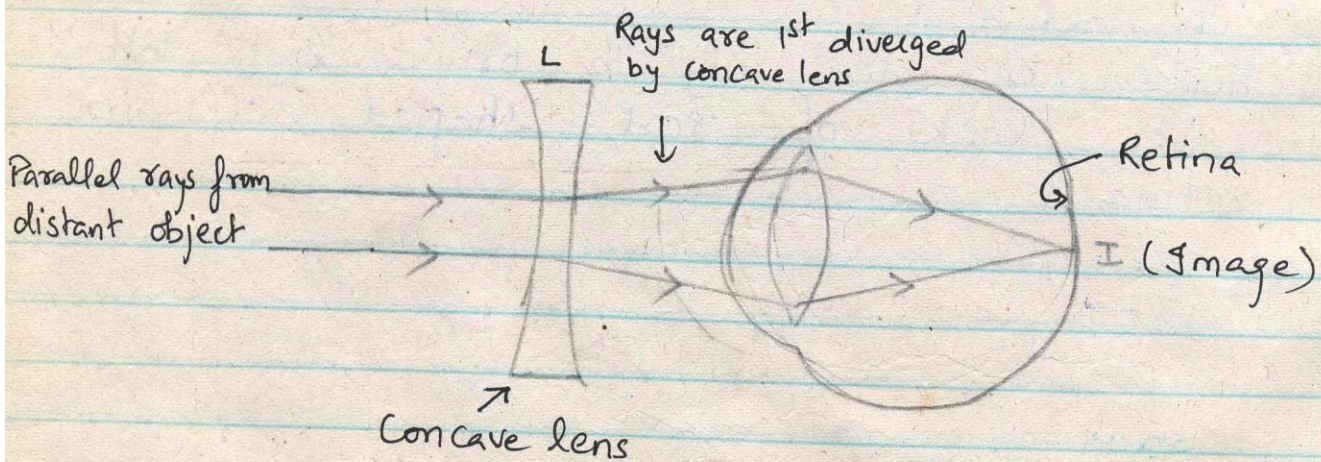 Rays are 1st diverged
by concave lens
L
Parallel rays from
distant object
Retina
I (Image)
Concave lens